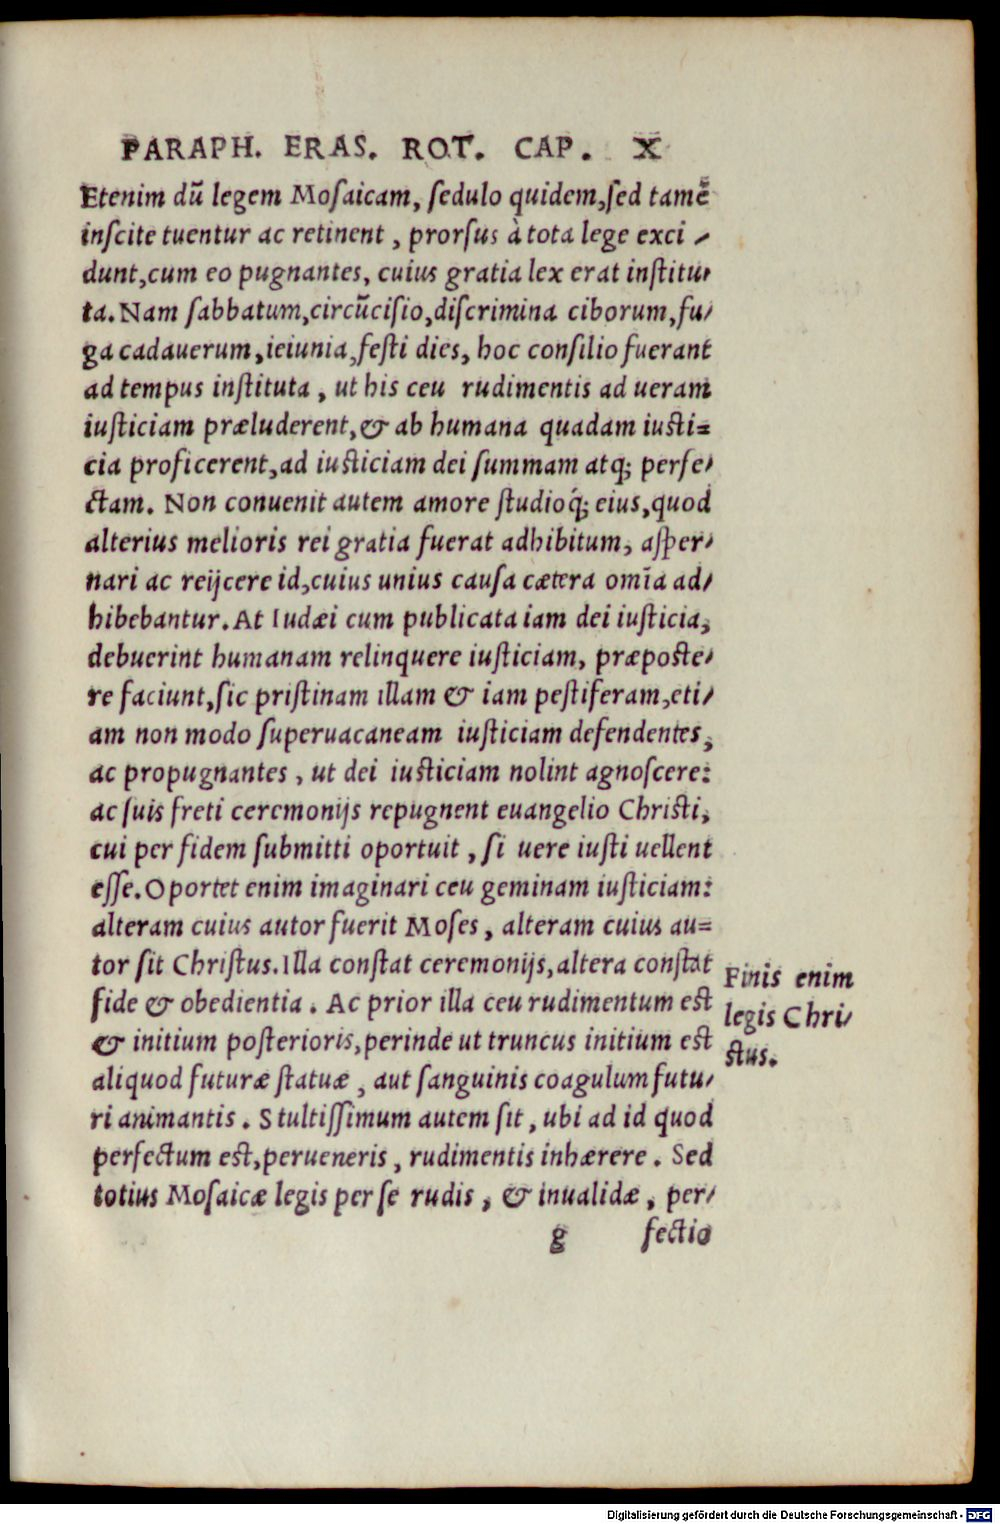 PARAPH. ERAS. ROT. CAP. X
Etenim dū legem Mosaicam, sedulo quidem, sed tamē
inscite tuentur ac retinent, prorsus à tota lege exci-
dunt, cum eo pugnantes, cuius gratia lex erat institu-
ta. Nam sabbatum, circūcisio, discrimina ciborum, fu-
ga cadauerum, ieiunia, festi dies, hoc consilio fuerant
ad tempus instituta, ut his ceu rudimentis ad ueram
iusticiam præluderent, & ab humana quadam iusti=
cia proficerent, ad iusticiam dei summam atq; perfe-
ctam. Non conuenit autem amore studioq́; eius, quod
alterius melioris rei gratia fuerat adhibitum, asper-
nari ac reijcere id, cuius unius causa cætera omīa ad-
hibebantur. At Iudæi cum publicata iam dei iusticia,
debuerint humanam relinquere iusticiam, præposte-
re faciunt, sic pristinam illam & iam pestiferam, eti-
am non modo superuacaneam iusticiam defendentes,
ac propugnantes, ut dei iusticiam nolint agnoscere:
ac suis freti ceremonijs repugnent euangelio Christi,
cui per fidem submitti oportuit, si uere iusti uellent
esse. Oportet enim imaginari ceu geminam iusticiam:
alteram cuius autor fuerit Moses, alteram cuius au=
tor sit Christus. Illa constat ceremonijs, altera constat
fide & obedientia. Ac prior illa ceu rudimentum est
& initium posterioris, perinde ut truncus initium est
aliquod futuræ statuæ, aut sanguinis coagulum futu-
ri animantis. Stultissimum autem sit, ubi ad id quod
perfectum est, perueneris, rudimentis inhærere. Sed
totius Mosaicæ legis per se rudis, & inualidæ, per-
g fectio
Finis enim
legis Chri-
stus.
Digitalisierung gefördert durch die Deutsche Forschungsgemeinschaft - DFG